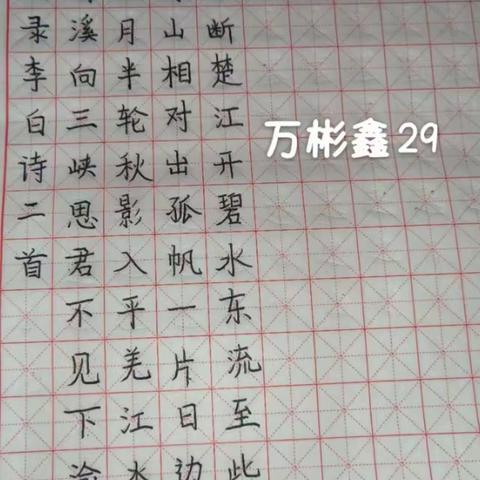 断楚江开碧水东流至此
山相对出孤帆一片日边
月半轮秋影入平羌江水
溪向三峡思君不见下渝
录李白诗二首
万彬鑫29